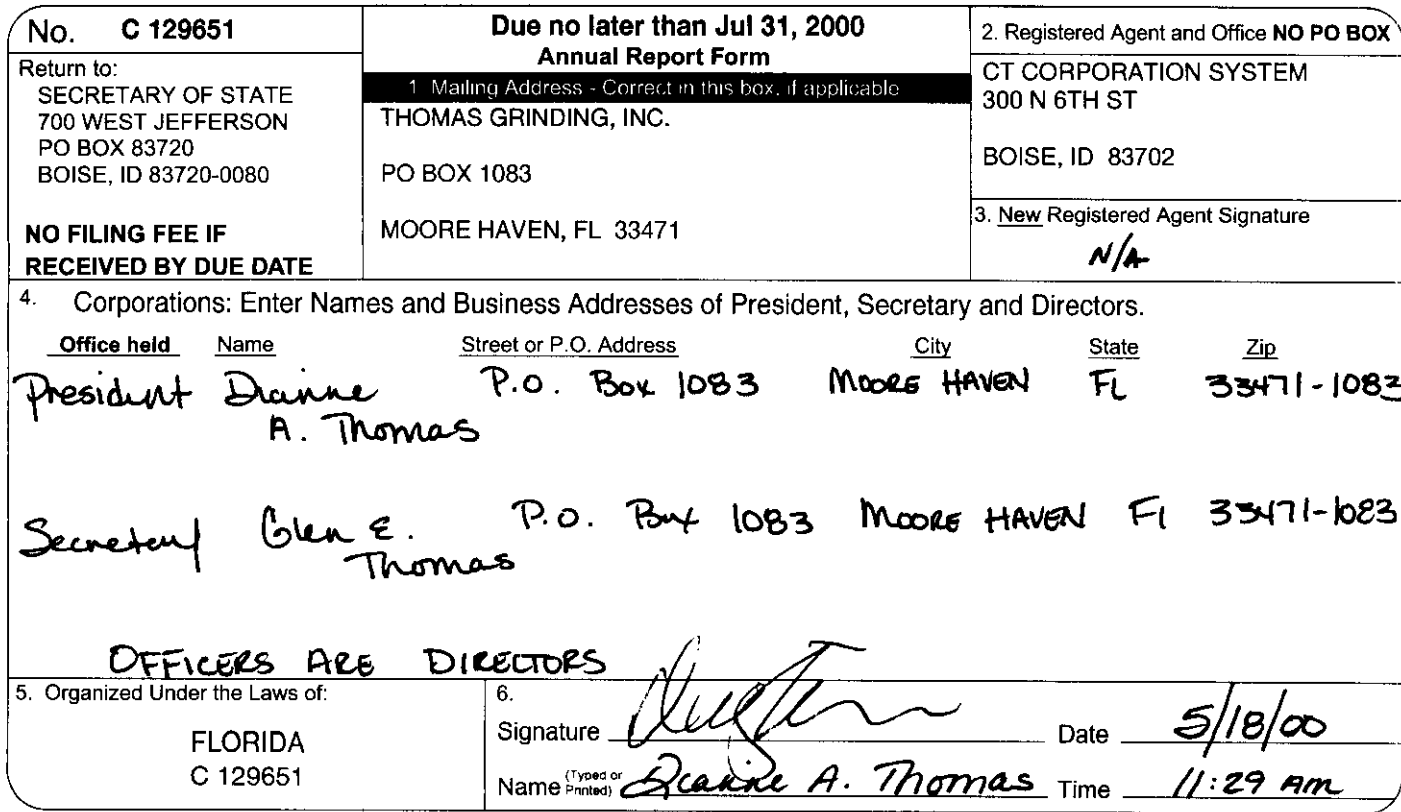 No. C 129651
Return to:
SECRETARY OF STATE
700 WEST JEFFERSON
PO BOX 83720
BOISE, ID 83720-0080
NO FILING FEE IF
RECEIVED BY DUE DATE
Due no later than Jul 31, 2000
Annual Report Form
1 Mailing Address - Correct in this box, if applicable
THOMAS GRINDING, INC.
PO BOX 1083
MOORE HAVEN, FL 33471
2. Registered Agent and Office NO PO BOX
CT CORPORATION SYSTEM
300 N 6TH ST
BOISE, ID 83702
3. New Registered Agent Signature
N/A
4. Corporations: Enter Names and Business Addresses of President, Secretary and Directors.
Office held Name Street or P.O. Address City State Zip
President Deanne P.O. Box 1083 MOORE HAVEN FL 33471-1083
A. Thomas
Secretary Glen E. P.O. Box 1083 MOORE HAVEN Fl 33471-1083
Thomas
OFFICERS ARE DIRECTORS
5. Organized Under the Laws of:
FLORIDA
C 129651
6.
Signature Date 5/18/00
Name (Typed or Printed) Deanne A. Thomas Time 11:29 AM